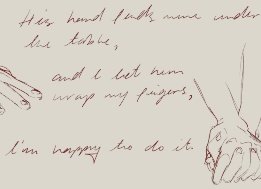 His hand finds mine under
the table,
and I let him
wrap my fingers,
I'm happy to do it.